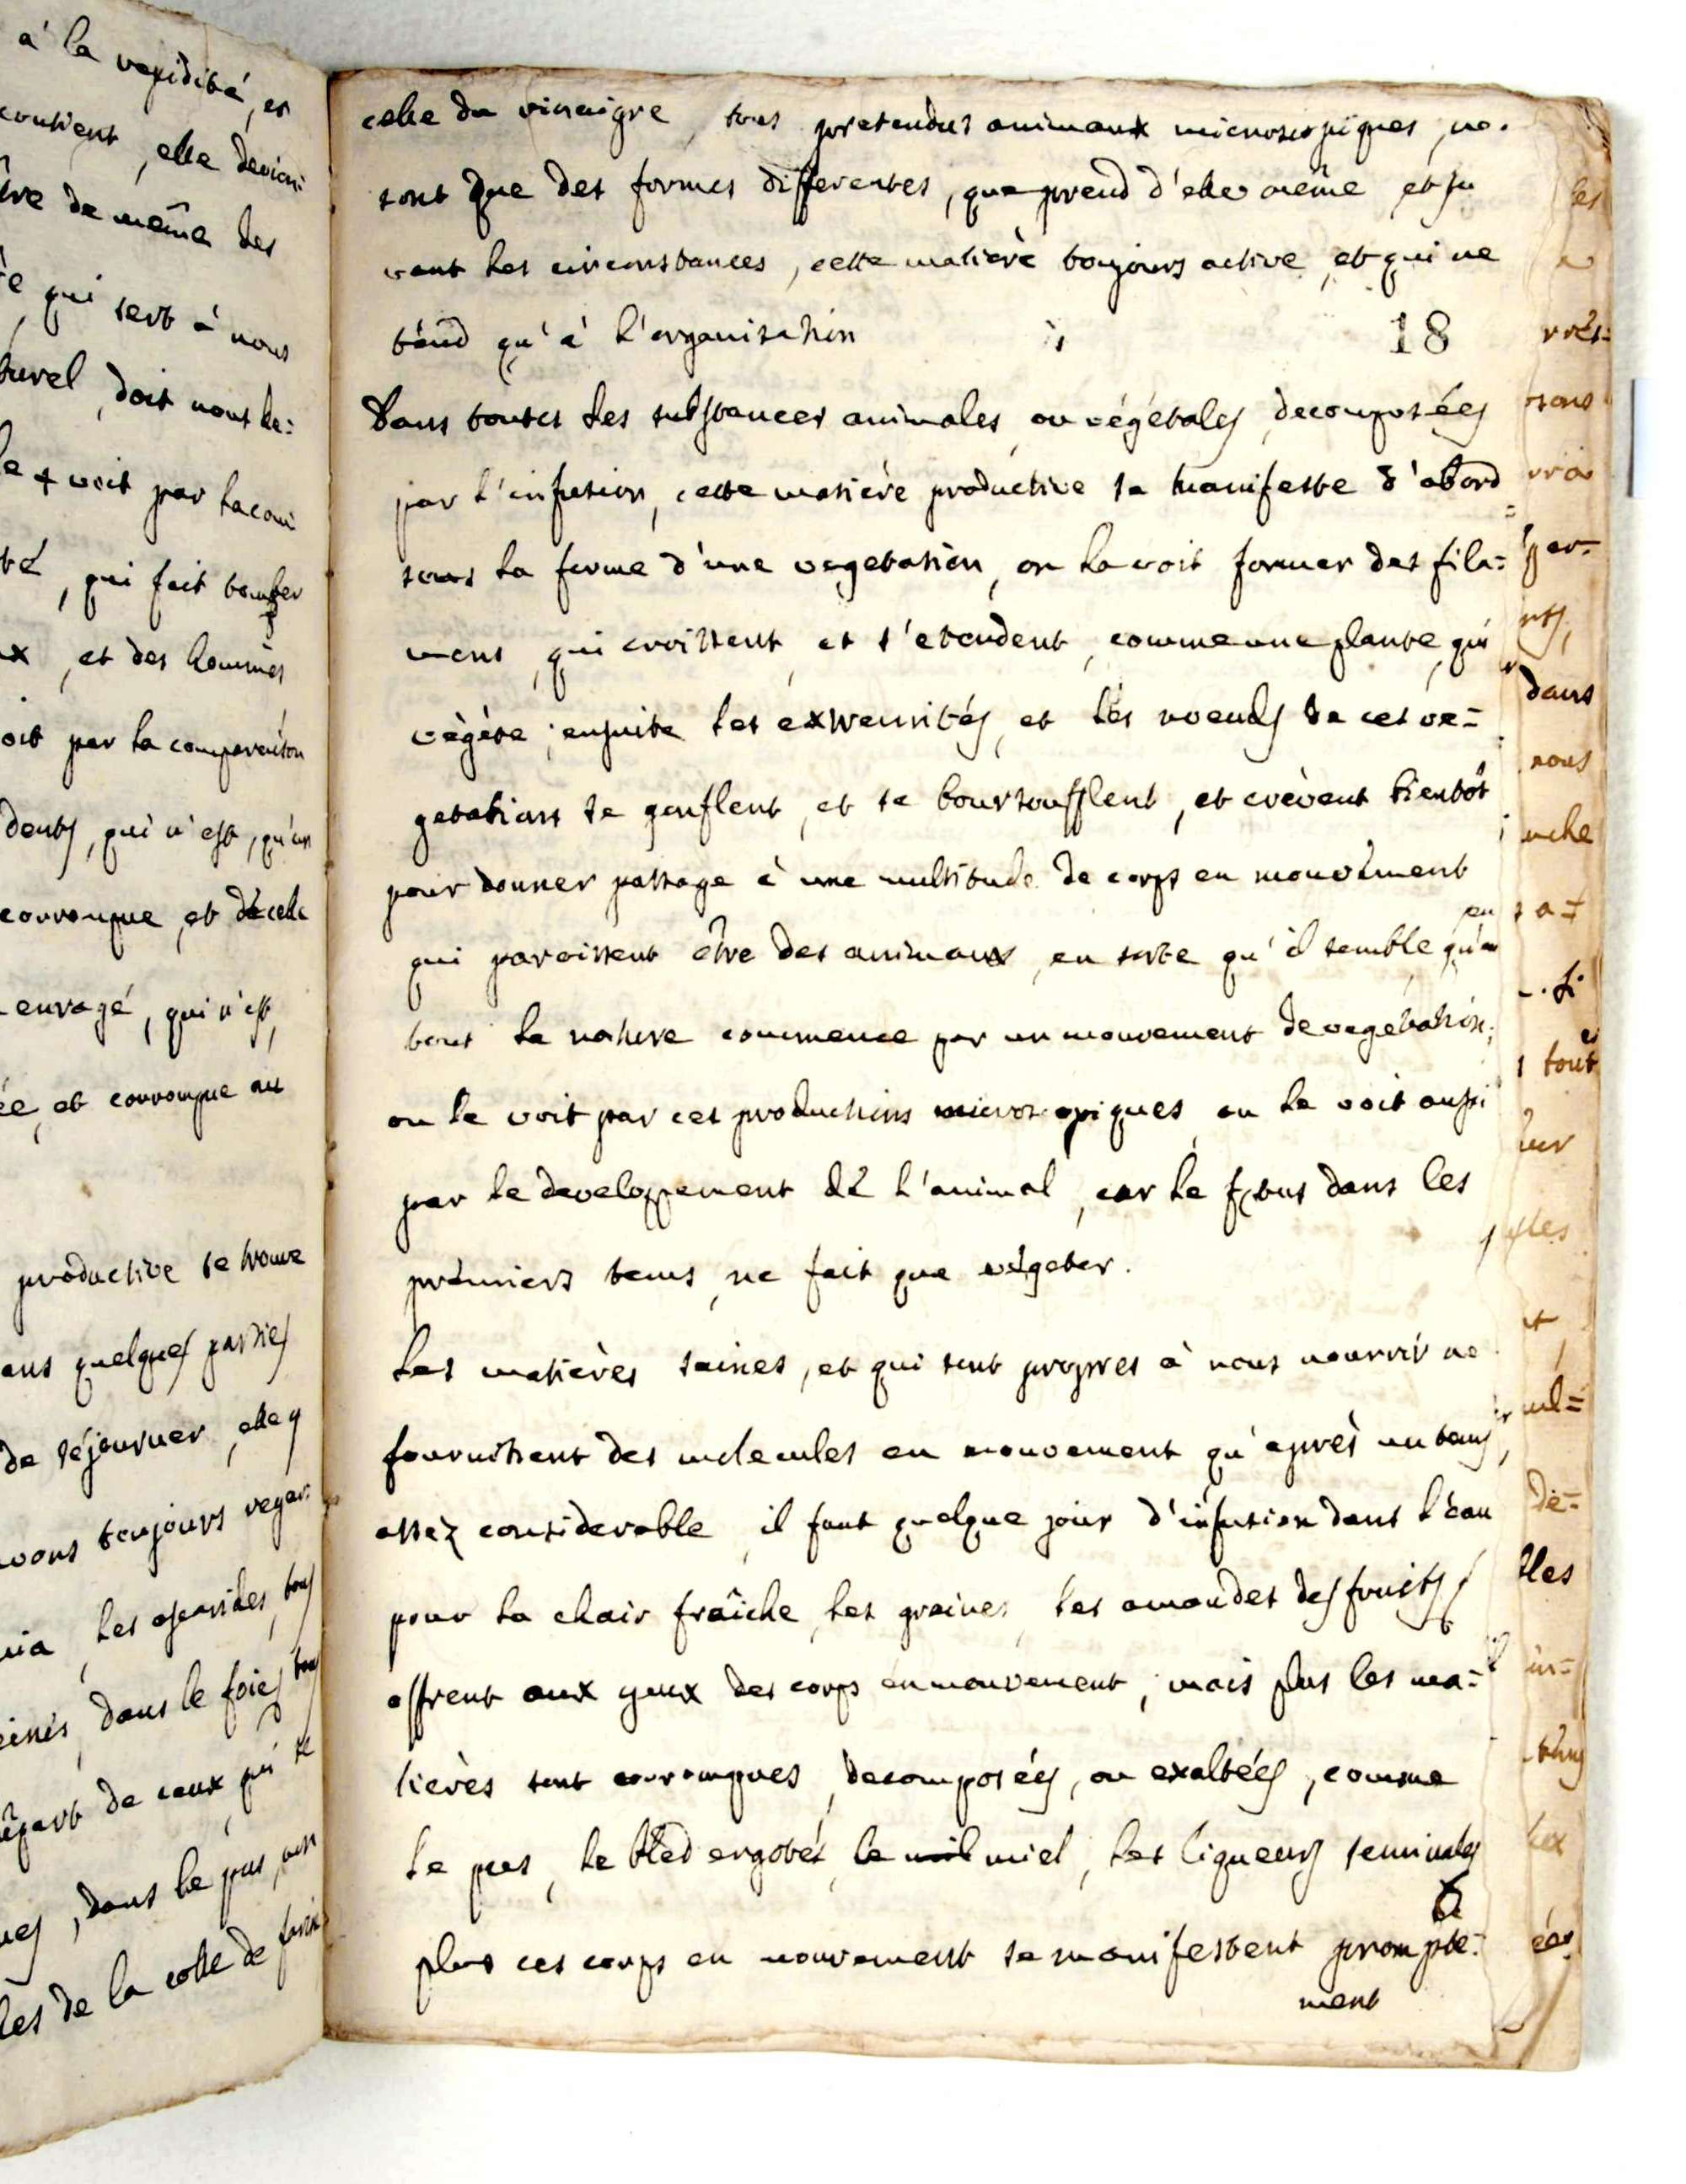 à la rapidité, et
contient, elle devien:
tre de même des
qui sert à nous
turel, doit nous le:
voit par la com
té, qui fait tomber
x, et des hommes
oit par la comparaison
dents, qui n'est, qu'un
corrompue, et de celle
enragé, qui n'est,
ée, et corrompue au
productive se trouve
ans quelques parties
de séjourner, elle y
vons toujours regar:
nia, les ascarides, tous
eines, dans le foie, tous
égart de ceux qui se
ues, dans le pus, non
les de la colle de farine
celle du vinaigre, tous pretendus animaux microscopiques, ne.
sont que des formes differentes, que prend d'elle même, et sui
vant les circonstances, cette matière toujours active, et qui ne
tend qu'à l'organisation
18
Dans toutes les substances animales, ou végétales, decomposées
par l'infusion, cette matière productive se manifeste d'abord
sous la forme d'une vegetation, on la voit former des fila=
mens, qui croissent, et s'etendent, comme une plante, qui
végète; ensuite les extremités, et les noeuds de ces ve=
getations se gonflent, et se boursoufflent, et crèvent bientôt
pour donner passage à une multitude de corps en mouvement
qui paroissent être des animaux, en sorte qu'il semble qu'en
tout la nature commence par un mouvement de vegétation;
on le voit par ces productions microscopiques, on le voit aussi
par le developpement de l'animal, car le fœtus dans les
premiers tems, ne fait que végeter.
Les matières saines, et qui sont propres à nous nourrir ne
fournissent des molecules en mouvement qu'après un tems
assez considerable, il faut quelque jour d'infusion dans l'eau
pour la chair fraîche, les graines, les amandes des fruits
offrent aux yeux des corps en mouvement; mais plus les ma=
tières sont corrompues, decomposées, ou exaltées, comme
le pus, le bled ergotés, le miel, les liqueurs seminales
plus ces corps en mouvement se manifestent prompte=
ment
les
dans
nous
tout